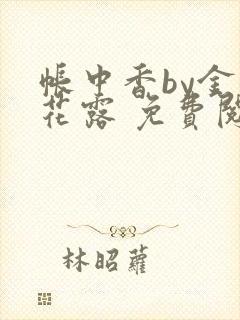 帳中香by金
花露 免費閱
林昭蘿